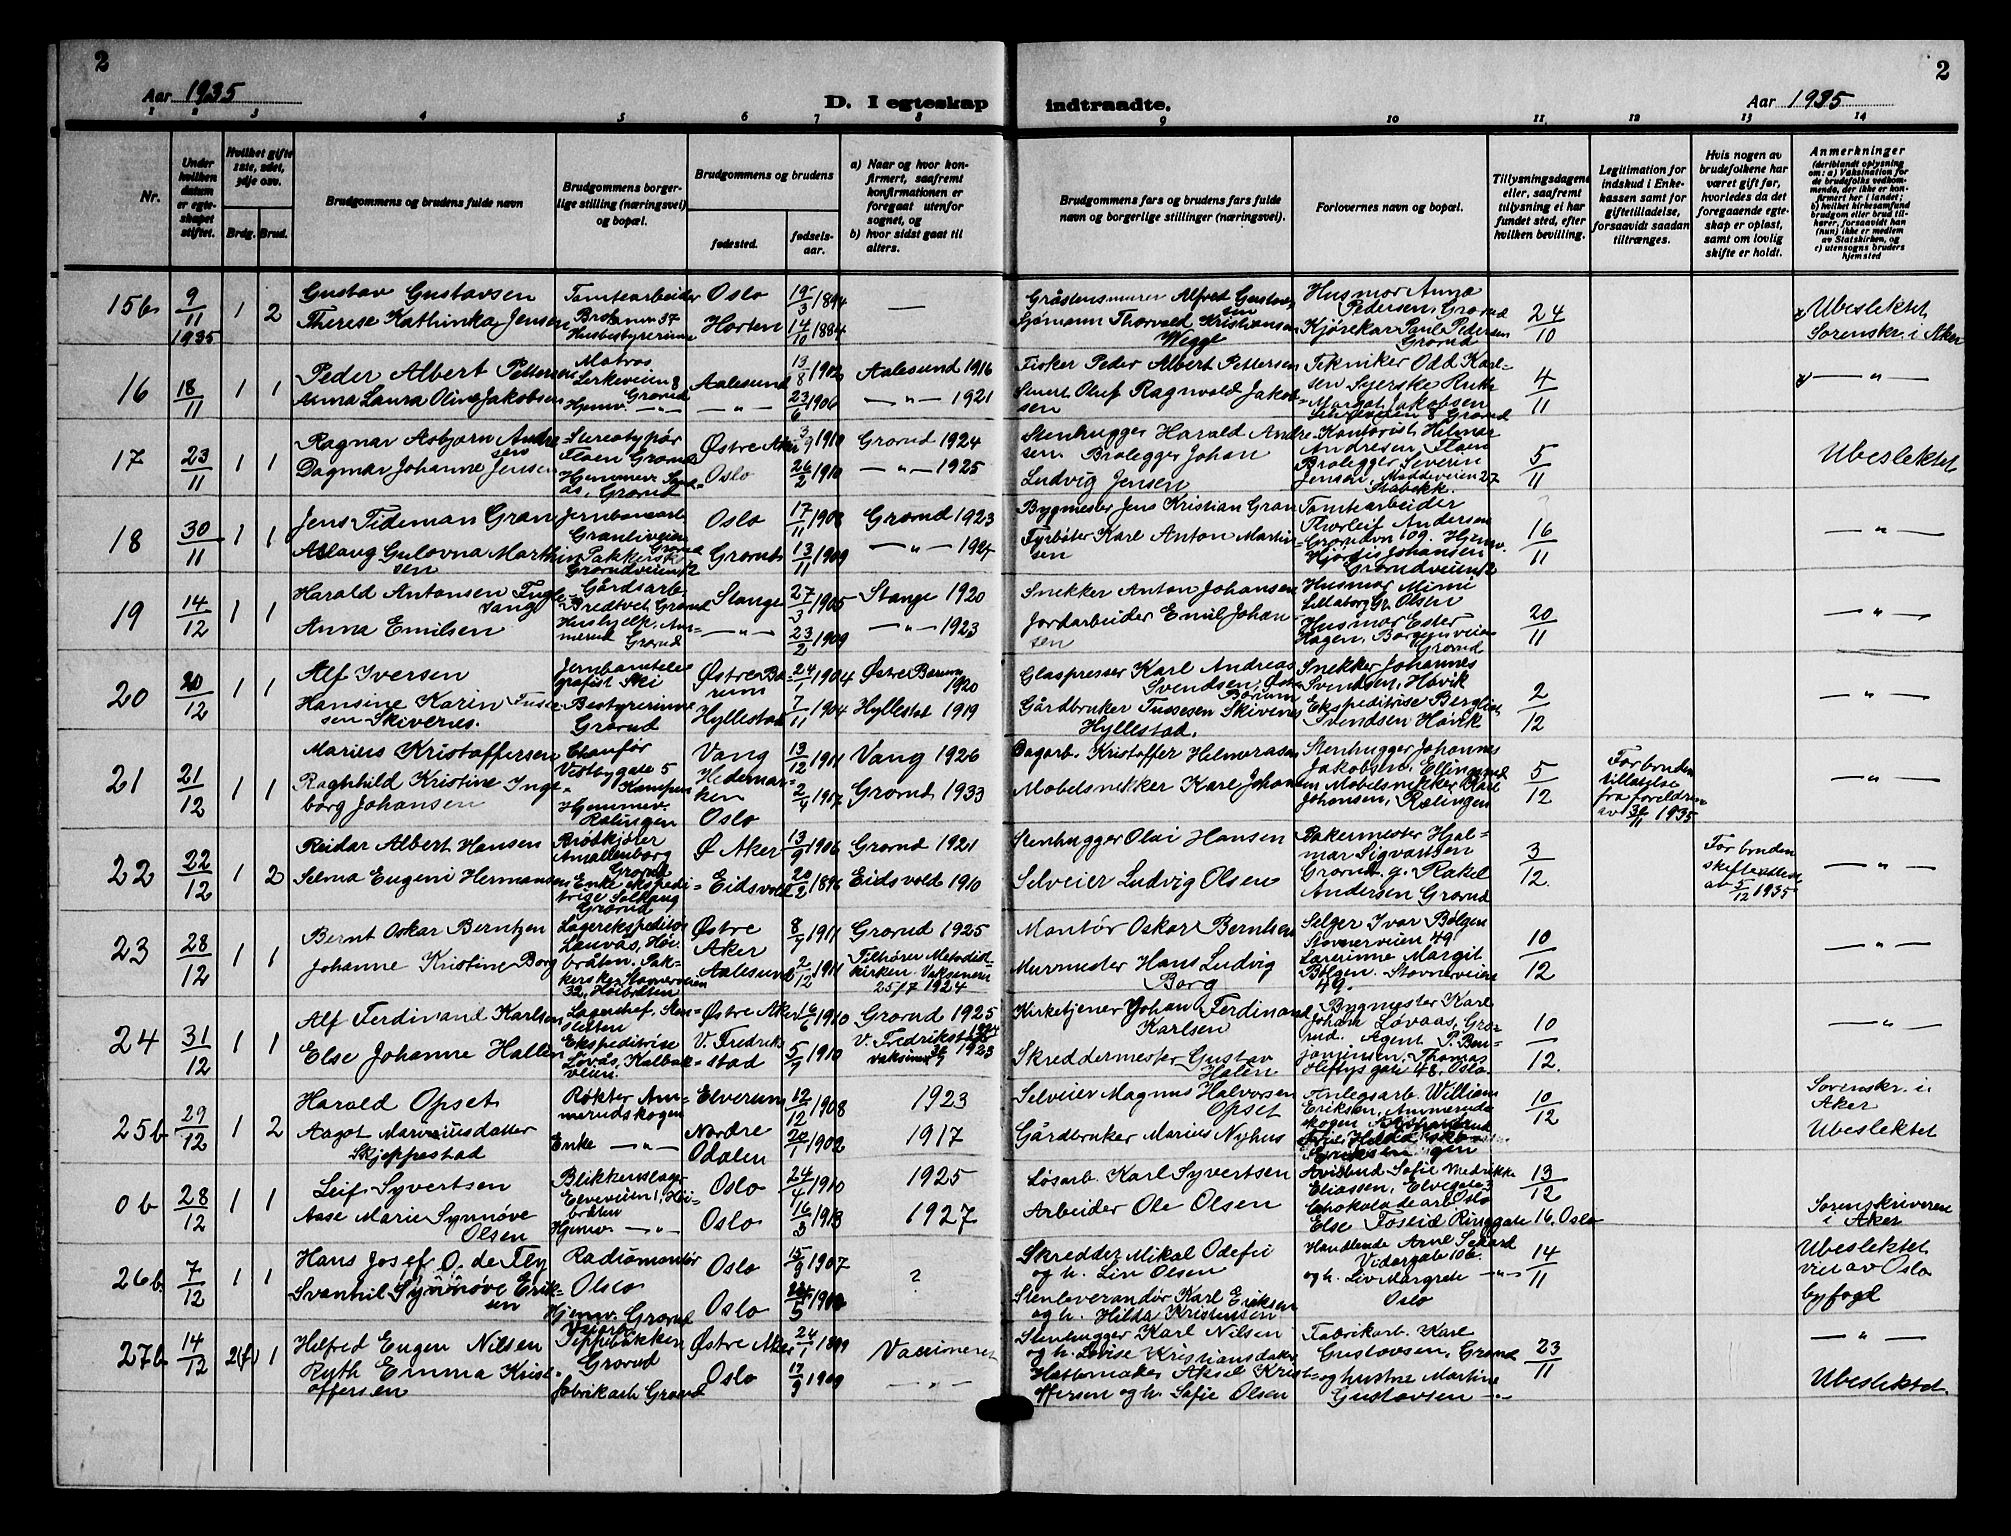 2
Aar 1935
D. I egteskap
1 2 3 4 5 6 7 8
Nr.
Under hvilken datum er egteskapet stiftet.
Hvilket gifte 1ste, 2det, 3dje osv.
Brdg. Brud.
Brudgommens og brudens fulde navn
Brudgommens borgerlige stilling (næringsvei) og bopæl.
Brudgommens og brudens
fødested.
fødselsaar.
a) Naar og hvor konfirmert, saafremt konfirmationen er foregaat utenfor sognet, og
b) hvor sidst gaat til alters.
15b 9/11 1935 1 2
Gustav Gustavsen
Therese Kathinka Jensen
Tomtearbeider
Husbestyrerinne
Oslo
Horten
19/3 1894
14/10 1884
16 18/11 1 1
Peder Albert Pettersen
Anna Laura Oline Jakobsen
Matros
Lerkeveien 8
Grorud
Hjemv. — " —
Aalesund
— " —
13/8 1902
23/6 1906
Aalesund 1916
— " — 1921
17 23/11 1 1
Ragnar Asbjørn Andresen
Dagmar Johanne Jensen
Stereotypør
Flaen Grorud
Østre Aker
Oslo
3/9 1910
26/2 1910
Grorud 1924
— " — 1925
18 30/11 1 1
Jens Tideman Gran
Aslaug Gulovna Martinsen
Jernbanearb.
Granliveien
Grorudveien 12
Oslo
Grorud
17/11 1908
13/11 1909
Grorud 1923
— " — 1924
19 14/12 1 1
Harald Antonsen Fuglesang
Anna Emilsen
Gårdsarb.
Bredtvet, Grorud
Hushjelp, Ammerud Grorud
Stange
— " —
27/3 1905
23/2 1909
Stange 1920
— " — 1923
20 20/12 1 1
Alf Iversen
Hansine Karin
Skivenes.
Jernbanetelegrafist Ski
Bestyrerinne
Grorud
Østre Bærum
Hyllestad
24/1 1904
7/11 1904
Østre Bærum 1920
Hyllestad 1919
21 21/12 1 1
Marius Kristoffersen
Raghhild Kristine Ingeborg Johansen
Chauffør
Vestbygate 5
Kampen
Hjemmev.
Rælingen
Vang
Hedemarken
Oslo
13/12 1911
2/4 1917
Vang 1926
Grorud 1933
22 22/12 1 2
Reidar Albert Hansen
Selma Eugeni Hermansen
Brødkjører
Amallenborg
Grorud
Enke ekspeditrise Solhaug
Grorud
Ø Aker
Eidsvold
13/9 1906
20/2 1896
Grorud 1921
Eidsvold 1910
23 28/12 1 1
Bernt Oskar Berntzen
Johanne Kristine Borg
Lagerekspeditør
Lauvås, Høibråten. Pakkerske Stovnerveien
32, Høibråten
Østre
Aker
Aalesund
8/7 1911
2/12 1911
Grorud 1925
Tilhører Metodistkirken. Vaksinert
25/7 1924
24 31/12 1 1
Alf Ferdinand Karlsen
Else Johanne Hallen
Lagerchef, Stensletten
Ekspeditrise
Løvås, Kalbakveien
Østre Aker
V. Fredrikstad
16/6 1910
5/7 1910
Grorud 1925
V. Fredrikstad 1924
25b 29/12 1 2
Harald Opset
Aagot Mariusdatter
Skjeppestad
Røkter Ammerudskogen
Enke — " —
Elverum
Nordre
Odalen
12/12 1908
20/1 1902
1923
1917
0b 28/12 1 1
Leif Syvertsen
Aase Marie Synnøve
Olsen
Blikkenslager
Elveveien 1, Høibråten
Hjemv. — " —
Oslo
Oslo
24/4 1910
16/3 1913
1925
1927
26b. 7/12 1 1
Hans Josef O. de Fly
Svanhil Synnøve Eriksen
Radiomontør
Oslo
Hjemv. Grorud
Oslo
Oslo
15/9 1907
?
27b 14/12 2(f) 1
Hilfred Eugen Nilsen
Ruth Emma Kristoffersen
Grorud
fabrikarb. Grorud
Østre Aker
Oslo
24/1 1899
17/9 1909
Vaccineret
— " —
2
indtraadte.
Aar 1935
9 10 11 12 13 14
Brudgommens fars og brudens fars fulde navn og borgerlige stillinger (næringsvei).
Forlovernes navn og bopæl.
Tillysningsdagene eller, saafremt tillysning ei har fundet sted, efter hvilken bevilling.
Legitimation for indskud i Enkekassen samt for giftetilladelse, forsaavidt saadan tiltrænges.
Hvis nogen av brudefolkene har været gift før, hvorledes da det foregaaende egteskap er opløst, samt om lovlig skifte er holdt.
Anmerkninger
(deriblandt oplysning om: a) Vaksination for de brudefolks vedkommende, der ikke er konfirmert her i landet; b) hvilket kirkesamfund brudgom eller brud tilhører, forsaavidt han (hun) ikke er medlem av Statskirken, og c) utensogns bruders hjemsted
Gråstensmurer Alfred Gustavsen
Sjømann Thorvald Kristiansen
Wegge
Husmor Anna
Pedersen, Grorud
Kjørekar Paul Pedersen
Grorud
24/10
Ubeslektet
Sorenskr. i Aker
Fisker Peder Albert Pettersen
Oluf Ragnvald Jakobsen
Tekniker Odd Karlsen Syerske Ruth
Margot Jakobsen
Lerkeveien 8 Grorud
4/11
— " —
Stenhugger Harald Andresen Brolegger Johan
Ludvig Jensen
Kontorist Hilmar
Andresen Flaen
Brolegger Severin
Jensen, Møddeveien 27
Stabekk.
5/11
Ubeslektet
Bygmester Jens Kristian Gran
Fyrbøter Karl Anton Martinsen
Tomtearbeider
Thorleif Andersen
Grorudvn 109. Hjemv.
Hjørdis Johansen
Grorudveien 12
16/11
— " —
Snekker Anton Johansen
Jordarbeider Emil Johansen
Husmor Mimi
Olsen
Husmor Ester
Hagen, Bergensveien
Grorud
20/11
— " —
Glaspresser Karl Andreas
Svendsen, Østre
Bærum
Gårdbruker Tussesen Skivenes
Hyllestad.
Snekker Johannes
Svendsen, Høvik
Ekspeditrise Bergliot
Svendsen Høvik
2/12
— " —
Dagarb. Kristoffer Helmersen
Møbelsnekker Karl Johansen
Stenhugger Johannes
Jakobsen, Ellingsrud
Møbelsnekker Karl
Johansen, Rælingen
5/12
For bruden
tillatelse
fra foreldrene
av 30/11 1935
— " —
Stenhugger Olai Hansen
Selveier Ludvig Olsen
Bakermester Hjalmar Sigvartsen
Grorud. g. Rakel
Andersen Grorud
3/12.
For bruden
skifteattest
av 5/12 1935
— " —
Montør Oskar Berntsen
Murmester Hans Ludvig
Borg
Selger Ivar Bølgen
Stovnerveien 49
Lærerinne Margit
Bølgen. Stovnerveien
49.
10/12
— " —
Kirketjener Johan Ferdinand
Karlsen
Skreddermester Gustav
Halén
Bygmester Karl
Johan Løvaas, Grorud. Agent P. Benjaminsen, Thomas
Heftys gate 48. Oslo.
10/12.
— " —
Selveier Magnus Halvorsen
Opset
Gårdbruker Marius Nyhus
Anlegsarb. William
Eriksen, Ammerudskogen
10/12
Sorenskr. i
Aker
Ubeslektet
Løsarb. Karl Syvertsen
Arbeider Ole Olsen
Sofie
Eliassen, Elvegate 3
Oslo
Chokoladearb.
Else Foseid Ringgate 16, Oslo
13/12
Sorenskriveren
i Aker
Skredder Mikal Odefei
og h. Liv Olsen
Stenleverandør Karl Eriksen
og h. Hilda Kristensen
Handlende Arne Sekard
Vidargate 10b
og h. Liv Margrete — " —
Oslo
14/11
Ubeslektet
viet av Oslo
byfogd
Stenhugger Karl Nilsen
og h. Lovise Kristiansdatter
Hattemaker Aksel Kristoffersen og h. Sofie Olsen
Fabrikarb. Karl
Gustavsen, Grorud
og hustru Martine
Gustavsen — " —
23/11
— " —
Ubeslektet.